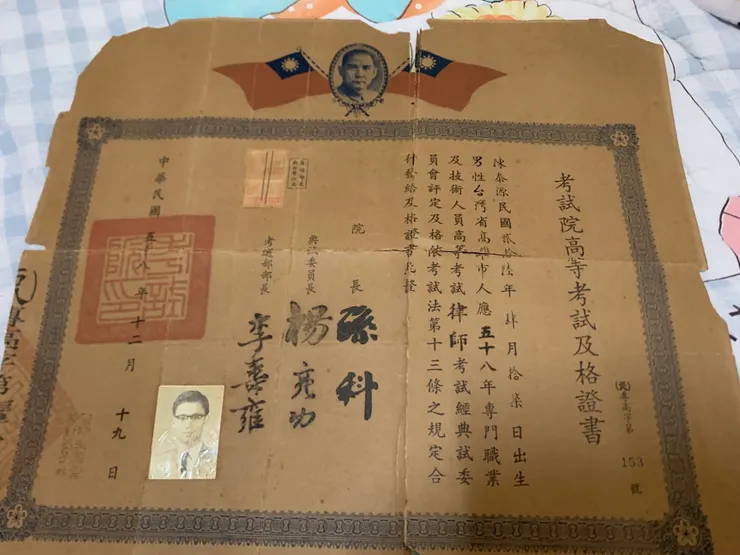 考試院高等考試及格證書
專高字第 153 號
陳泰源民國貳拾陸年肆月拾柒日出生
男性台灣省高雄市人應五十八年專門職業
及技術人員高等考試律師考試經典試委
員會評定及格依考試法第十三條之規定合
行發給及格證書此證
院長 孫科
典試委員長 楊亮功
考選部部長 李壽雍
中華民國五十八年十二月十九日
考試院印